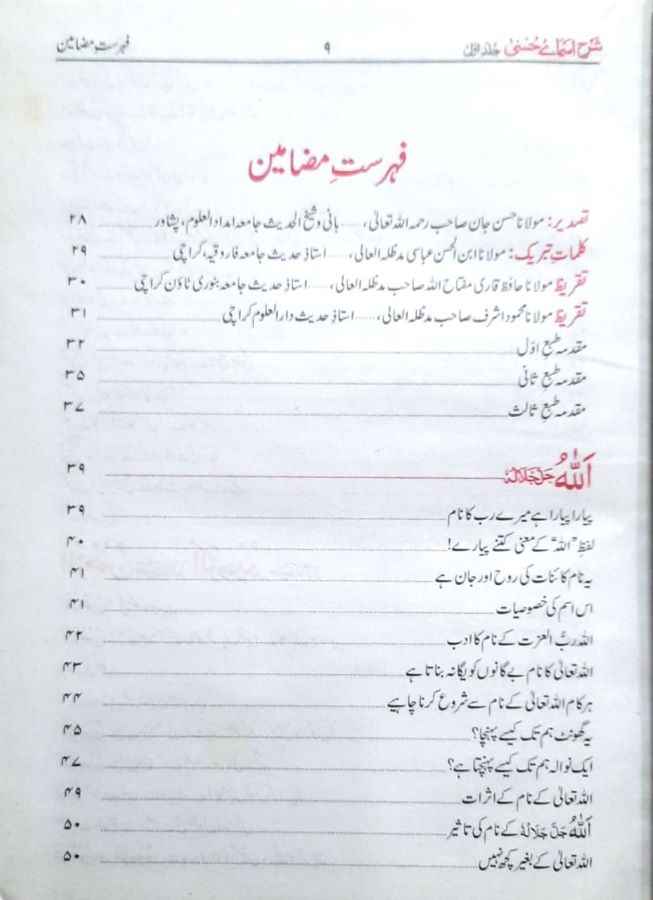 شرح اسمائے حسنیٰ جلد اوّل ۹ فہرستِ مضامین
فہرستِ مضامین
تصدیر: مولانا حسن جان صاحب رحمہ اللہ تعالیٰ، ..... بانی و شیخ الحدیث جامعہ امداد العلوم، پشاور ۲۸
کلماتِ تبریک: مولانا ابن الحسن عباسی مدظلہ العالی، ..... استاذِ حدیث جامعہ فاروقیہ، کراچی ۲۹
تقریظ مولانا حافظ قاری مفتاح اللہ صاحب مدظلہ العالی، ..... استاذِ حدیث جامعہ بنوری ٹاؤن کراچی ۳۰
تقریظ مولانا محمود اشرف صاحب مدظلہ العالی، ..... استاذِ حدیث دارالعلوم کراچی ۳۱
مقدمہ طبع اوّل ۳۲
مقدمہ طبع ثانی ۳۵
مقدمہ طبع ثالث ۳۷
اَللّٰہُ جَلَّ جَلَالُہٗ ۳۹
پیارا پیارا ہے میرے رب کا نام ۳۹
لفظِ ”اللہ“ کے معنی کتنے پیارے! ۴۰
یہ نام کائنات کی روح اور جان ہے ۴۱
اس اسم کی خصوصیات ۴۱
اللہ ربُّ العزت کے نام کا ادب ۴۲
اللہ تعالیٰ کا نام بے گانوں کو یگانہ بناتا ہے ۴۳
ہر کام اللہ تعالیٰ کے نام سے شروع کرنا چاہیے ۴۴
یہ گھونٹ ہم تک کیسے پہنچا؟ ۴۵
ایک نوالہ ہم تک کیسے پہنچتا ہے؟ ۴۷
اللہ تعالیٰ کے نام کے اثرات ۴۹
اَللّٰہُ جَلَّ جَلَالُہٗ کے نام کی تاثیر ۵۰
اللہ تعالیٰ کے بغیر کچھ نہیں ۵۰